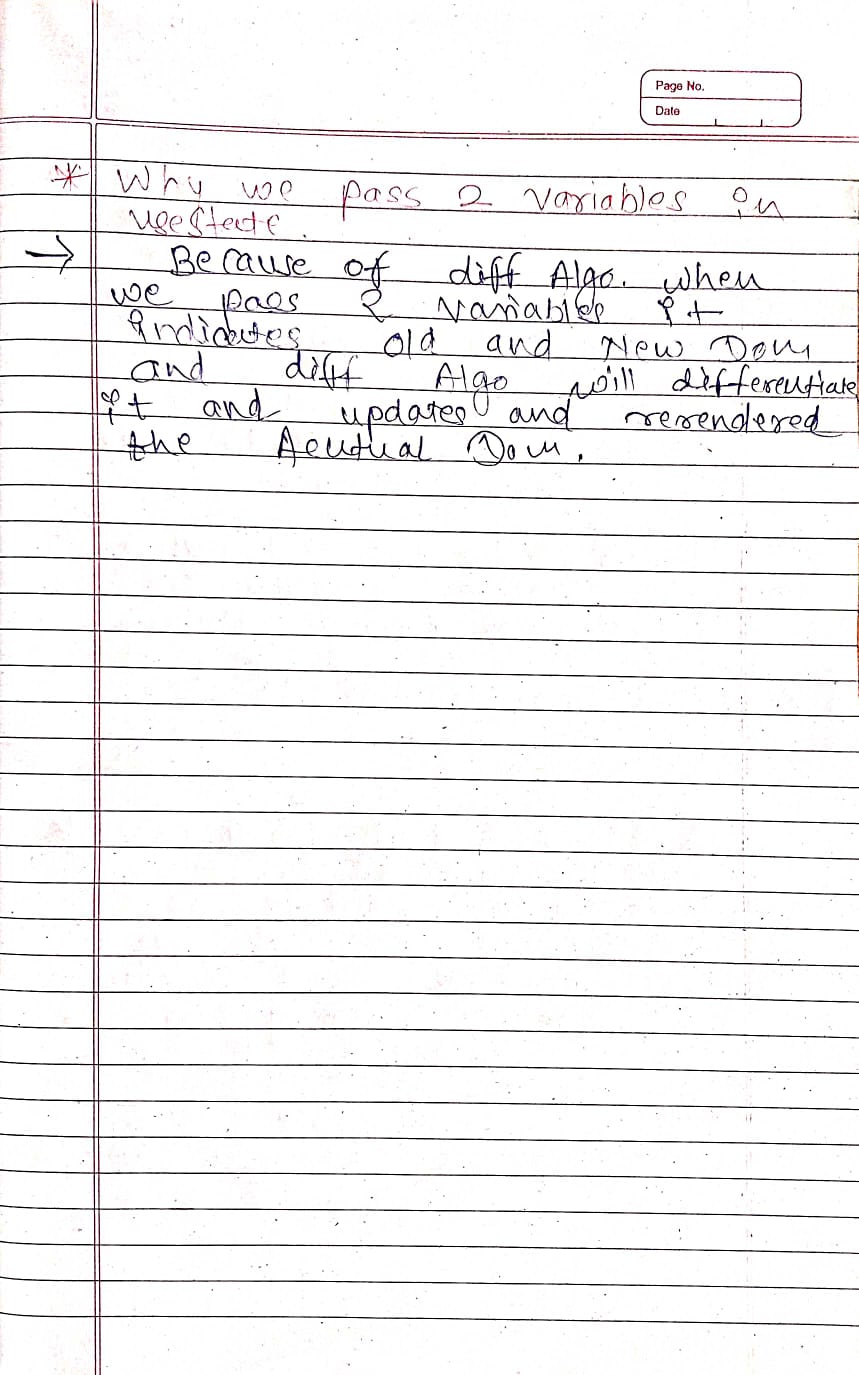 Page No.
Date
* Why we pass 2 variables in
usestate.
→ Because of diff Algo. when
we pass 2 variables it
indicates old and New Dom
and diff Algo will differentiate
it and updates and rerendered
the Acutual Dom.